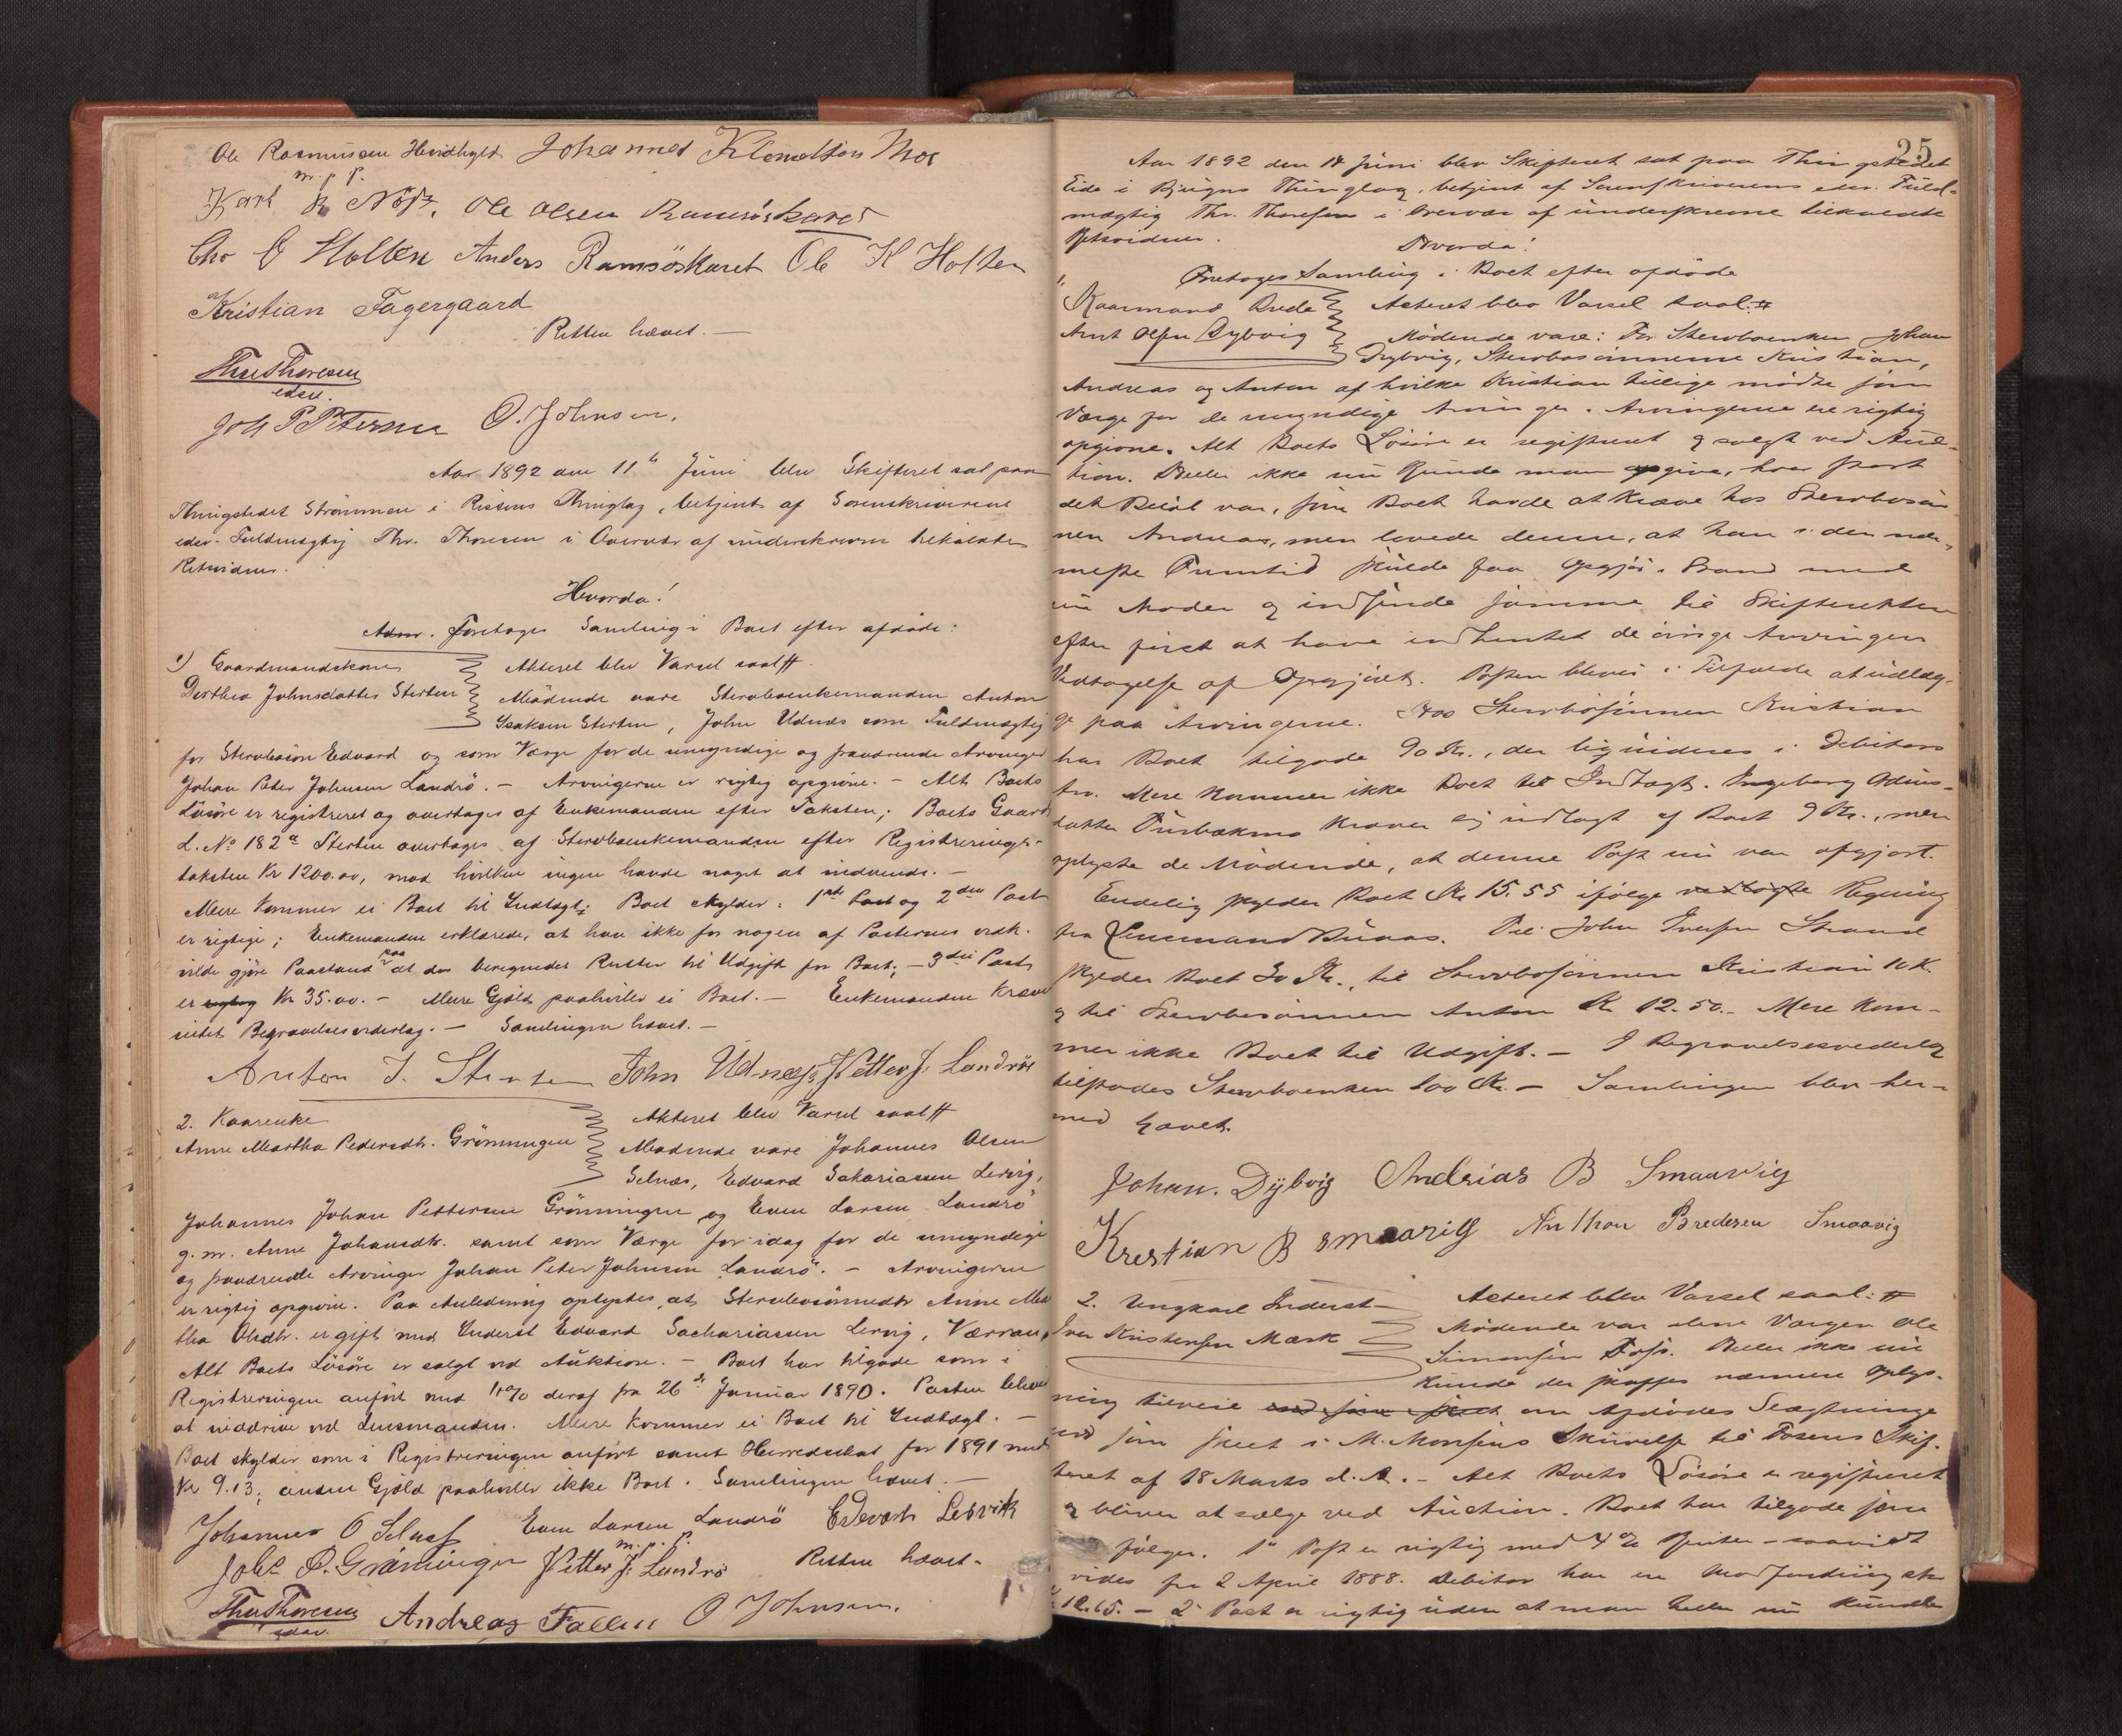 Ole Rasmussen Hvidbyld. Johannes Klemetsen Moe
m. p. P.
Karl K Nøst, Ole Olsen Ramsöskaret
Chr O Holten Anders Ramsöskaret Ole K Holten
Kristian Fagergaard
Retten hævet. —
Thr Thoresen
edsv.
Joh P Petersen O. Johnsen.
Aar 1892 den 11te Juni blev Skifteret sat paa
Thingstedet Strömmen i Rissens Thinglag, betjent af Sorenskriverens
edsv. Fuldmægtig Thr. Thoresen i Overvær af underskrevne tilkaldte
Retsvidner.
Hvorda!
Foretoges Samling i Boet efter afdøde:
1) Gaardmandskone
Dorthea Johnsdatter Sterten
Akteret blev Varsel saal. #
Mødende vare Stervboenkemanden Anton
Isaksen Sterten, John Udnæs som Fuldmægtig
for Stervbosøn Edvard og som Værge for de umyndige og fraværende Arvinger
Johan Peter Johnsen Landrö. — Arvingerne er rigtig opgivne. — Alt Boets
Løsøre er registreret og overtages af Enkemanden efter Taksten; Boets Gaard
L. No 182a Sterten overtages af Stervboenkemanden efter Registrerings-
taksten Kr 1200.00, mod hvilken ingen havde noget at indvende. —
Mere kommer ei Boet til Indtægt; Boet skylder: 1ste Post og 2den Post
er rigtige; Enkemanden erklærede, at han ikke for nogen af Posternes vedk.
vilde gjöre Paastand paa at der beregnedes Renter til Udgift for Boet; — 3die Post
er rigtig Kr 35.00. — Mere Gjæld paahviler ei Boet. — Enkemanden kræver
intet Begravelsesvederlag. — Samlingen hævet. —
Anton I. Sterten John Udnæs Petter J. Landrös
2. Kaarenke
Anne Martha Pedersdtr. Grönningen
Akteret blev Varsel saal #
Mødende vare Johannes Olsen
Selnæs, Edvard Sakariassen Lervig,
Johannes Johan Pettersen Grönningen og Even Larsen Landrö
g. m. Anne Johansdtr. samt som Værge for idag for de umyndige
og fraværende Arvinger Johan Peter Johnsen Landrö. — Arvingerne
er rigtig opgivne. Paa Anledning oplystes, at Stervbosønnedtr Anne Mar
tha Olsdtr. er gift med Inderst Edvard Sachariassen Lervig, Værran,
Alt Boets Løsøre er solgt ved Auktion. — Boet har tilgode som i
Registreringen anført med 4% deraf fra 26de Januar 1890. Posten bliver
at inddrive ved Lensmanden. Mere kommer ei Boet til Indtægt. —
Boet skylder som i Registreringen anført samt Herredsskat for 1891 med
Kr 9.13; anden Gjæld paahviler ikke Boet. Samlingen hævet. —
Johannes O Selnæs Even Larsen Landrö Edevart Lervik
m. p. P.
Johs P. Grönningen Petter J. Landrös Retten hævet.
Thr Thoresen Andreas Fallin O Johnsen.
edsv.
25
Aar 1892 den 14 Juni blev Skifteret sat paa Thingstedet
Eide i Bjugns Thinglag, betjent af Sorenskriverens edsv. Fuld-
mægtig Thr. Thoresen i Overvær af underskrevne tilkaldte
Retsvidner.
Hvorda!
Foretoges Samling i Boet efter afdøde
1.
Kaarmand Brede
Arnt Olsen Dybvig
Acteret blev Varsel saal. #
Mødende vare: For Stervboenken Johan
Dybvig, Stervbosønnerne Kristian,
Andreas og Anton af hvilke Kristian tillige mødte som
Værge for de umyndige Arvinger. Arvingerne ere rigtig
opgivne. Alt Boets Løsøre er registreret og solgt ved Auc-
tion. Heller ikke nu kunde man opgive, hvor stort
det Beløb var, som Boet havde at kræve hos Stervbosøn
nen Andreas, men lovede denne, at han i den nær-
meste Fremtid skulde faa Opgjör i Stand med
sin Moder og indsende samme til Skifteretten
efter först at have indhentet de övrige Arvingers
Vedtagelse af Opgjöret. Posten bliver i Tilfælde at udlæg-
ge paa Arvingerne. Hos Stervbosønnen Kristian
har Boet tilgode 90 Kr., der ligvideres i Debitors
Arv. Mere kommer ikke Boet til Indtægt. Ingeborg
datter kræver sig udlagt af Boet 9 Kr., men
oplyste de Mødende, at denne Post nu var afgjort.
Endelig skylder Boet Kr 15.55 ifølge vedlagte Regning
fra Lensmand. Til John Iversen Strand
skylder Boet 30 Kr., til Stervbosønnen Kristian 10 K.
og til Stervbosønnen Anton Kr 12.50. — Mere kom-
mer ikke Boet til Udgift. — I Begravelsesvederlag
tilstodes Stervboenken 100 Kr. — Samlingen blev her-
med hævet.
Johan. Dybvig Andrias B Smaavig
Krestian B Smaavig Anthon Bredesen Smaavig
2. Ungkarl Inderst
Iver Kristensen Mærk
Acteret blev Varsel saal: #
Mødende var alene Værgen Ole
Simonsen Foss. Heller ikke nu
kunde der skaffes nærmere Oplys-
ning tilveie om Afdødes Slægtninge
end som skeet i M. Monsens Skrivelse til Fosens Skif-
teret af 18 Marts d. A. — Alt Boets Løsøre er registreret
og bliver at sælge ved Auction. Boet har tilgode som
følger. 1ste Post er rigtig med 4 % Renter — saavidt
vides fra 2 April 1888. Debitor har en Modfordring stor
12.65. — 2den Post er rigtig uden at man heller nu kunde